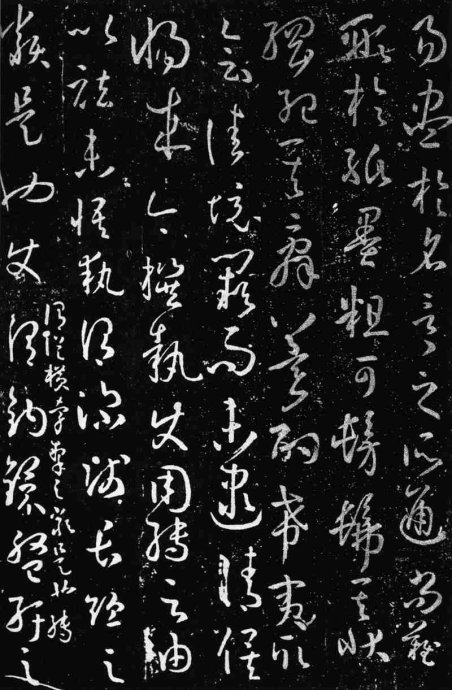 易盡於名言之所通尚難
形於紙墨粗可髣髴其狀
綱紀其辭冀酌希夷取
會佳境闕而未逮請俟
將來今撰執使用轉之由
以祛未悟執謂深淺長短之
類是也使
謂縱橫牽掣之類是也轉
謂鉤鐶盤紆之